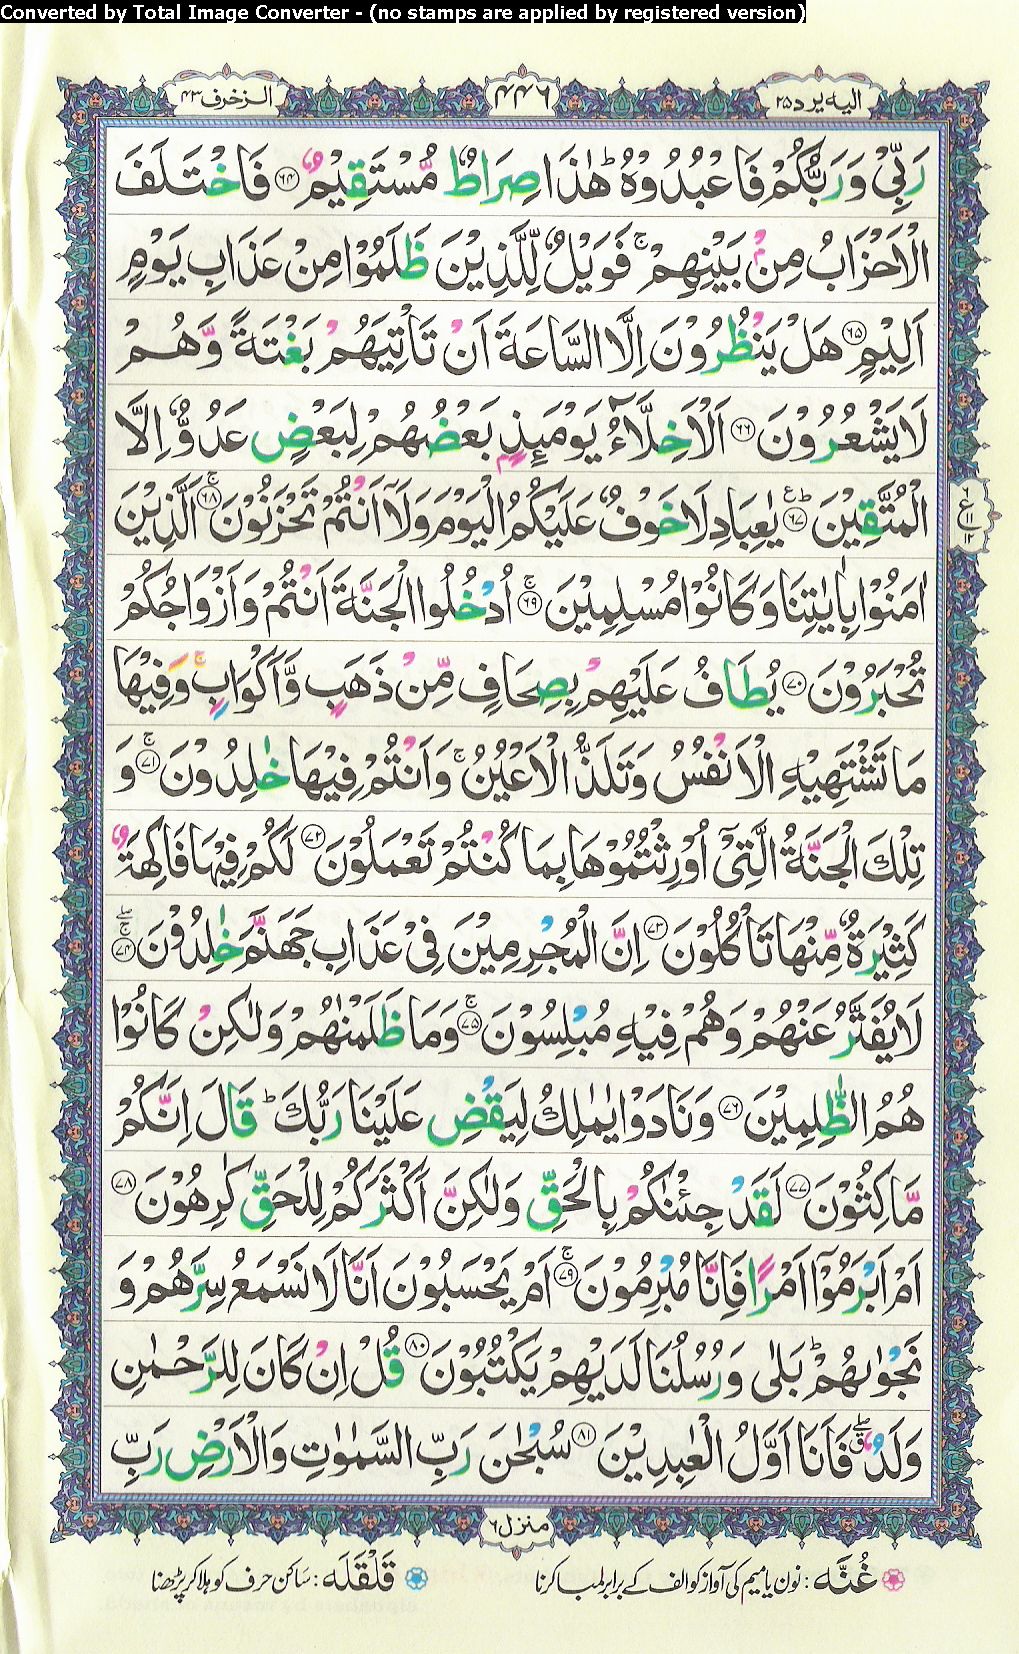 Converted by Total Image Converter - (no stamps are applied by registered version)
الیه یرد ۲۵
۴۴۶
الزخرف ۴۳
رَبِّیْ وَ رَبُّكُمْ فَاعْبُدُوْهُ ؕ هٰذَا صِرَاطٌ مُّسْتَقِیْمٌ ﴿۶۴﴾ فَاخْتَلَفَ
الْاَحْزَابُ مِنْۢ بَیْنِهِمْ ۚ فَوَیْلٌ لِّلَّذِیْنَ ظَلَمُوْا مِنْ عَذَابِ یَوْمٍ
اَلِیْمٍ ﴿۶۵﴾ هَلْ یَنْظُرُوْنَ اِلَّا السَّاعَةَ اَنْ تَاْتِیَهُمْ بَغْتَةً وَّ هُمْ
لَا یَشْعُرُوْنَ ﴿۶۶﴾ اَلْاَخِلَّآءُ یَوْمَىِٕذٍۭ بَعْضُهُمْ لِبَعْضٍ عَدُوٌّ اِلَّا
الْمُتَّقِیْنَ ﴿۶۷﴾ؕ۠ یٰعِبَادِ لَا خَوْفٌ عَلَیْكُمُ الْیَوْمَ وَ لَاۤ اَنْتُمْ تَحْزَنُوْنَ ﴿۶۸﴾ۚ اَلَّذِیْنَ
ع
۶
۱۱
۱۲
اٰمَنُوْا بِاٰیٰتِنَا وَ كَانُوْا مُسْلِمِیْنَ ﴿۶۹﴾ۚ اُدْخُلُوا الْجَنَّةَ اَنْتُمْ وَ اَزْوَاجُكُمْ
تُحْبَرُوْنَ ﴿۷۰﴾ یُطَافُ عَلَیْهِمْ بِصِحَافٍ مِّنْ ذَهَبٍ وَّ اَكْوَابٍ ۚ وَ فِیْهَا
مَا تَشْتَهِیْهِ الْاَنْفُسُ وَ تَلَذُّ الْاَعْیُنُ ۚ وَ اَنْتُمْ فِیْهَا خٰلِدُوْنَ ﴿۷۱﴾ۚ وَ
تِلْكَ الْجَنَّةُ الَّتِیْۤ اُوْرِثْتُمُوْهَا بِمَا كُنْتُمْ تَعْمَلُوْنَ ﴿۷۲﴾ لَكُمْ فِیْهَا فَاكِهَةٌ
كَثِیْرَةٌ مِّنْهَا تَاْكُلُوْنَ ﴿۷۳﴾ اِنَّ الْمُجْرِمِیْنَ فِیْ عَذَابِ جَهَنَّمَ خٰلِدُوْنَ ﴿۷۴﴾ۚۖ
لَا یُفَتَّرُ عَنْهُمْ وَ هُمْ فِیْهِ مُبْلِسُوْنَ ﴿۷۵﴾ۚ وَ مَا ظَلَمْنٰهُمْ وَ لٰكِنْ كَانُوْا
هُمُ الظّٰلِمِیْنَ ﴿۷۶﴾ وَ نَادَوْا یٰمٰلِكُ لِیَقْضِ عَلَیْنَا رَبُّكَ ؕ قَالَ اِنَّكُمْ
مّٰكِثُوْنَ ﴿۷۷﴾ لَقَدْ جِئْنٰكُمْ بِالْحَقِّ وَ لٰكِنَّ اَكْثَرَكُمْ لِلْحَقِّ كٰرِهُوْنَ ﴿۷۸﴾
اَمْ اَبْرَمُوْۤا اَمْرًا فَاِنَّا مُبْرِمُوْنَ ﴿۷۹﴾ۚ اَمْ یَحْسَبُوْنَ اَنَّا لَا نَسْمَعُ سِرَّهُمْ وَ
نَجْوٰىهُمْ ؕ بَلٰی وَ رُسُلُنَا لَدَیْهِمْ یَكْتُبُوْنَ ﴿۸۰﴾ قُلْ اِنْ كَانَ لِلرَّحْمٰنِ
وَلَدٌ ۖۗ فَاَنَا اَوَّلُ الْعٰبِدِیْنَ ﴿۸۱﴾ سُبْحٰنَ رَبِّ السَّمٰوٰتِ وَ الْاَرْضِ رَبِّ
منزل ۶
غُنَّه : نون یا میم کی آواز کو الف کے برابر لمبا کرنا
قَلْقَلَه : ساکن حرف کو ہلا کر پڑھنا